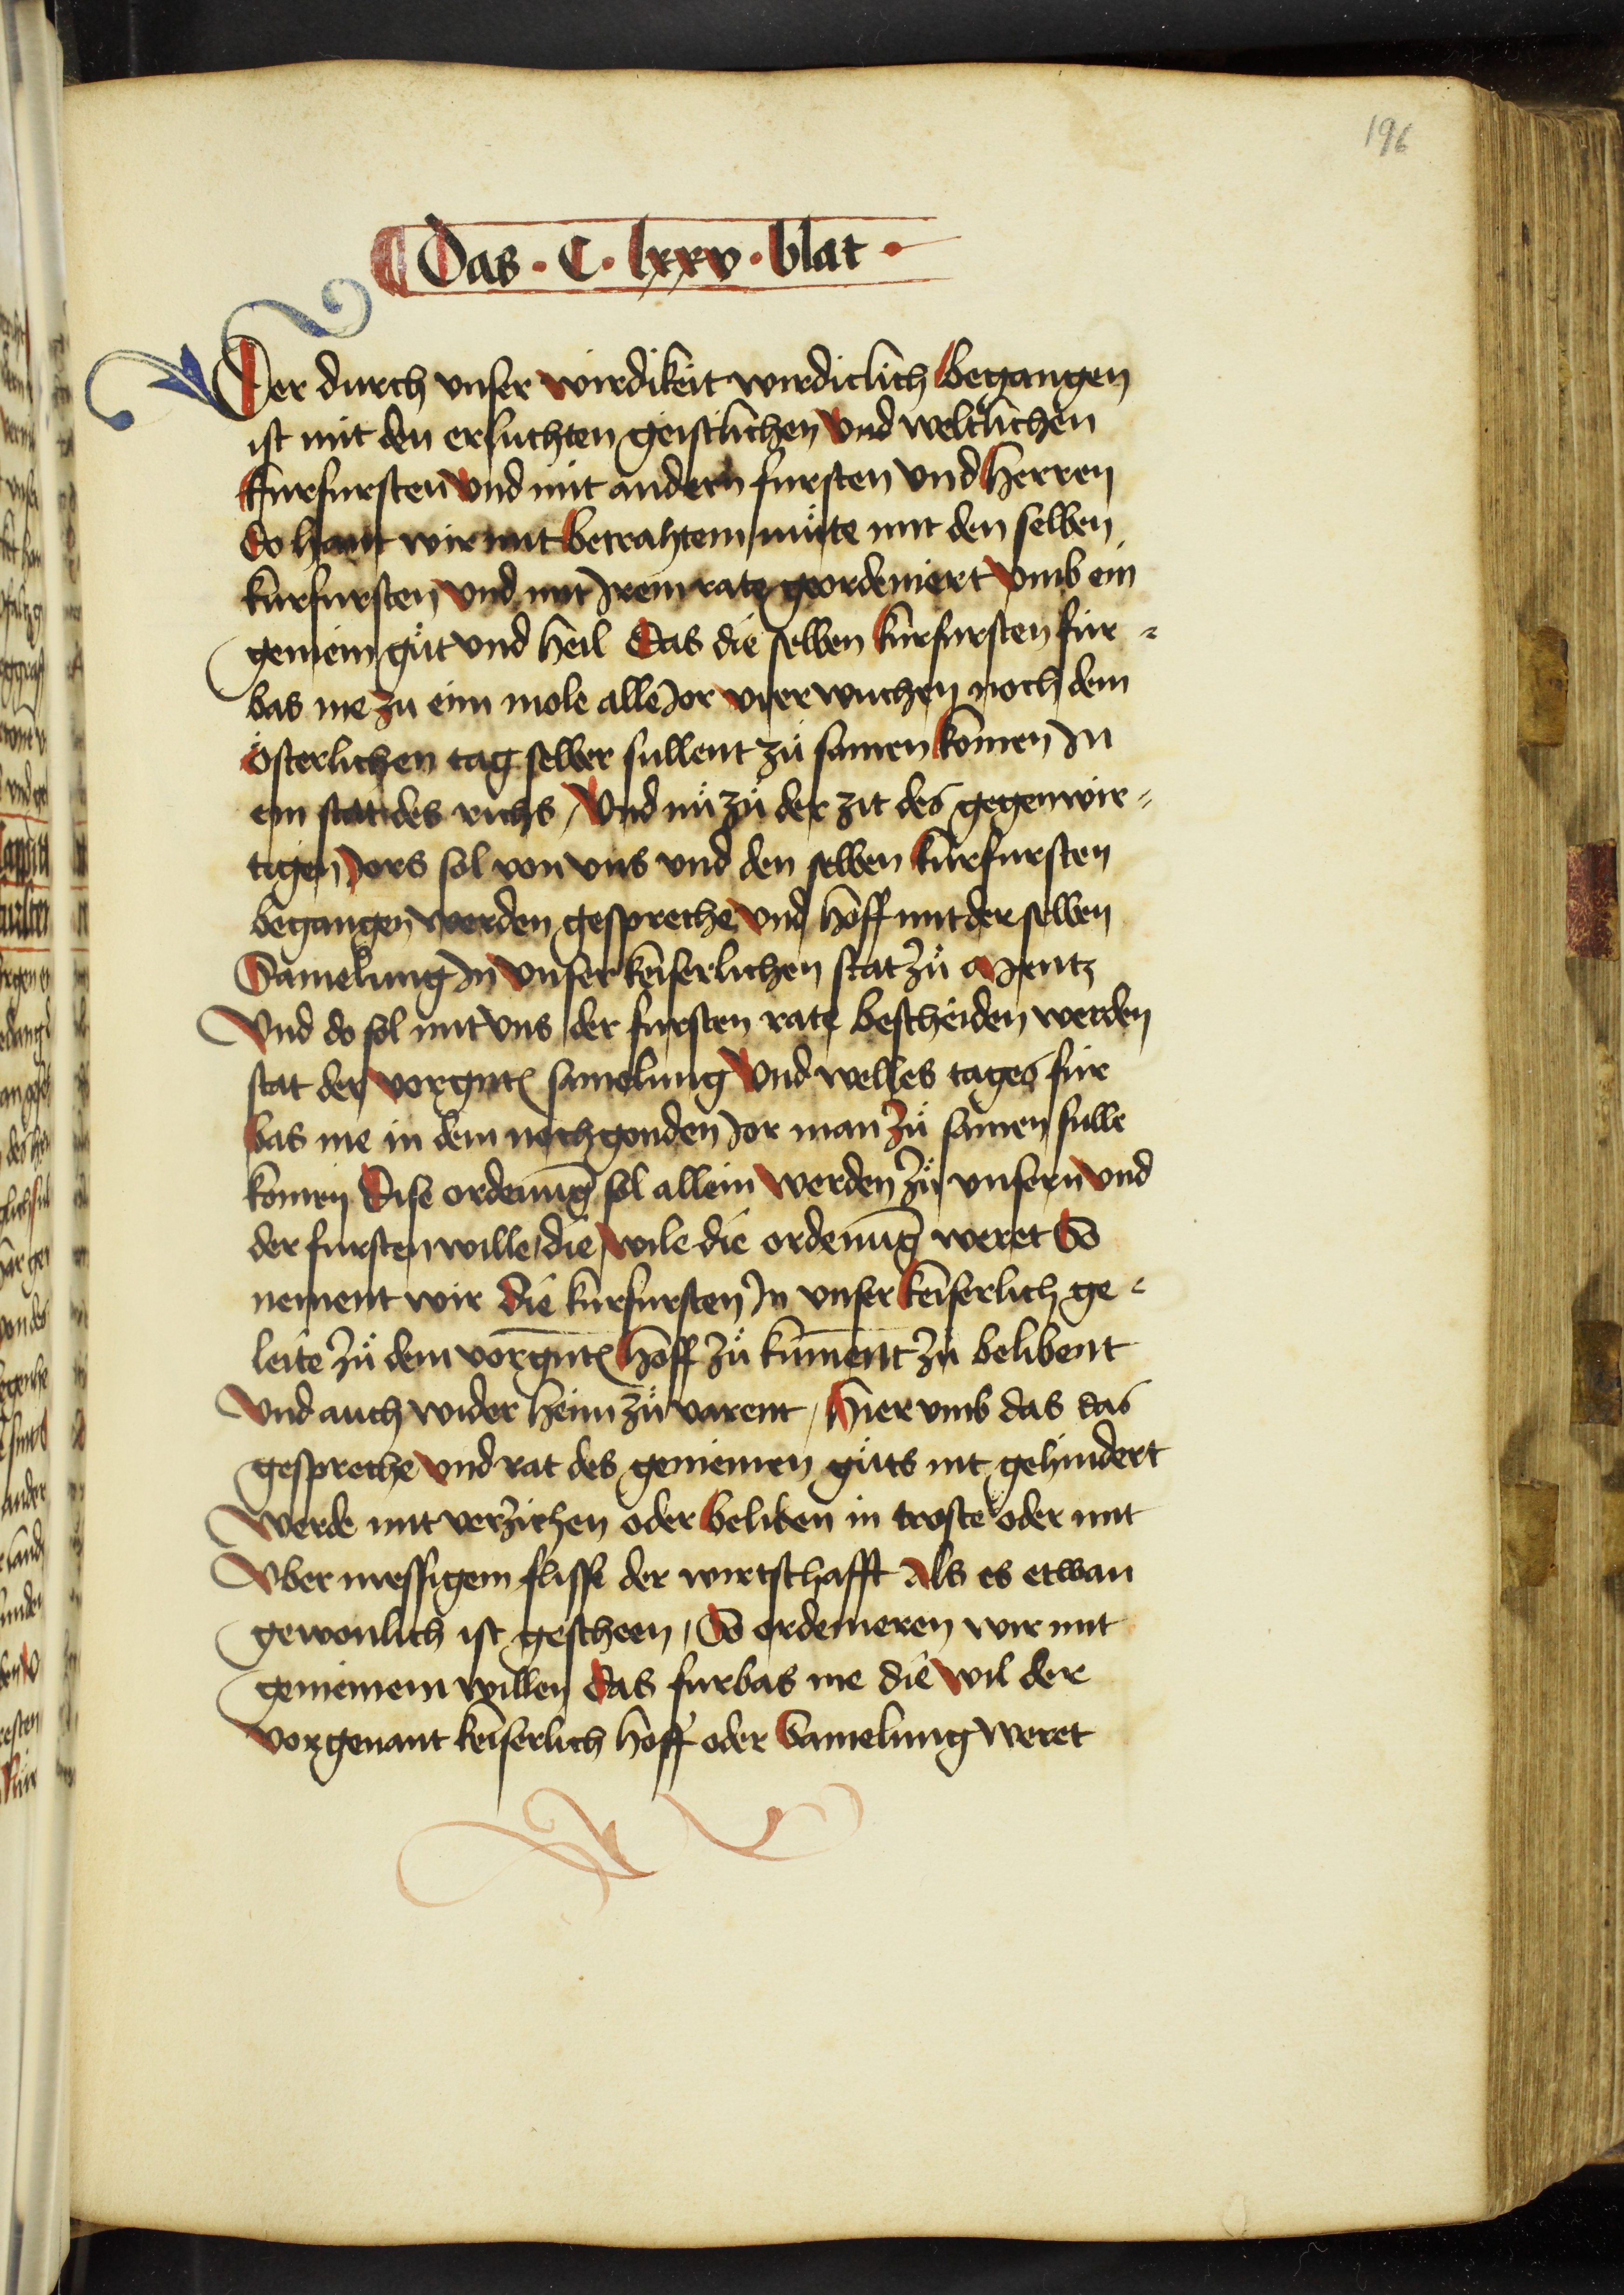 196
Das · C · lxxv · blat ·
Der durch vnser wirdikeit wirdiclich begangen
ist mit den erluchten geistlichen vnd weltlichen
kurfursten vnd mit andern fursten vnd herren
do hant wir mit betrahtem můte mit den selben
kurfursten vnd mit Irem rate geordeniert vmb ein
gemein gůt vnd heil Das die selben kurfursten für-
bas me zu eim mole alle Jor vier wuchen noch dem
österlichen tag selber sullent zů samen komen In
ein stat des richs / Vnd nů zů der zit des gegenwir-
tigen Jors sol von vns vnd den selben kurfursten
begangen werden gespreche vnd hoff mit der selben
Samelung In vnser keiserlichen stat zů Mentz
Vnd do sol mit vns der fursten rate bescheiden werden
stat der vorgnten̄ samelung Vnd welles tages für
bas me in dem nochgonden Jor man zů samen sulle
komen Dise ordenūg sol allein werden zů vnsern vnd
der fursten wille / die wile die ordenūg weret So
nement wir die kurfursten In vnser keiserlich ge-
leite zů dem vorgnten̄ hoff zů kūment zů belibent
Vnd auch wider heim zů varent / Hier vmb das das
gespreche vnd rat des gemeinen gůts nit gehindert
Werde mit verzichen oder beliben in troste oder mit
Vber messigem flisse der wirtschafft Als es etwan
gewonlich ist gescheen / So ordenieren wir mit
gemeinem willen das furbas me die wil der
vorgenant keiserlich hoff oder Samelung weret